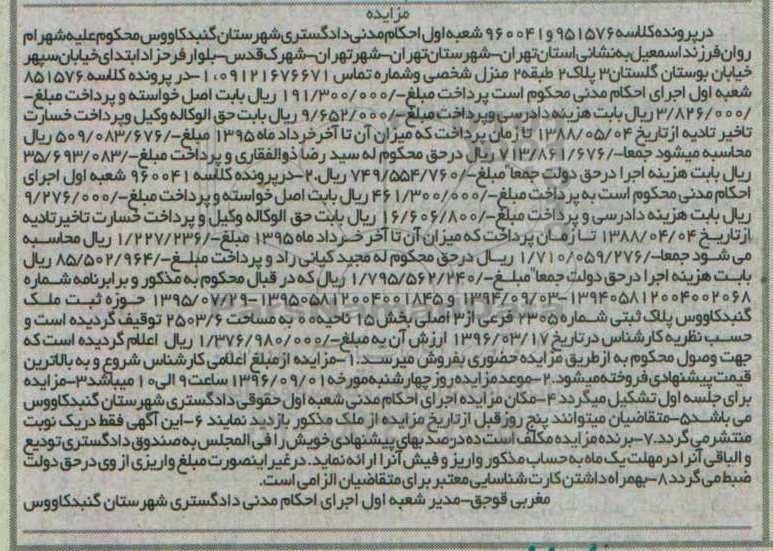 مزایده
درپرونده کلاسه ۹۵۱۵۷۶ و ۹۶۰۰۴۱ شعبه اول احکام مدنی دادگستری شهرستان گنبدکاووس محکوم علیه شهرام
روان فرزند اسمعیل به نشانی استان تهران-شهرستان تهران-شهرتهران-شهرک قدس-بلوار فرحزاد ابتدای خیابان سپهر
خیابان بوستان گلستان۳ پلاک۲ طبقه۲ منزل شخصی وشماره تماس ۰۹۱۲۱۶۷۶۶۷۱-۱-در پرونده کلاسه ۸۵۱۵۷۶
شعبه اول اجرای احکام مدنی محکوم است پرداخت مبلغ-/۱۹۱/۳۰۰/۰۰۰ ریال بابت اصل خواسته و پرداخت مبلغ-
/۳/۸۲۶/۰۰۰ ریال بابت هزینه دادرسی وپرداخت مبلغ-/۹/۶۵۲/۰۰۰ ریال بابت حق الوکاله وکیل وپرداخت خسارت
تاخیر تادیه ازتاریخ ۱۳۸۸/۰۵/۰۴ تا زمان پرداخت که میزان آن تا آخرخرداد ماه ۱۳۹۵ مبلغ-/۵۰۹/۰۸۳/۶۷۶ ریال
محاسبه میشود جمعا-/۷۱۳/۸۶۱/۶۷۶ ریال درحق محکوم له سید رضا ذوالفقاری و پرداخت مبلغ-/۳۵/۶۹۳/۰۸۳
ریال بابت هزینه اجرا درحق دولت جمعا"مبلغ-/۷۴۹/۵۵۴/۷۶۰ ریال.۲-درپرونده کلاسه ۹۶۰۰۴۱ شعبه اول اجرای
احکام مدنی محکوم است به پرداخت مبلغ-/۴۶۱/۳۰۰/۰۰۰ ریال بابت اصل خواسته و پرداخت مبلغ-/۹/۲۷۶/۰۰۰
ریال بابت هزینه دادرسی و پرداخت مبلغ-/۱۶/۶۰۶/۸۰۰ ریال بابت حق الوکاله وکیل و پرداخت خسارت تاخیرتادیه
ازتاریخ ۱۳۸۸/۰۴/۰۴ تا زمان پرداخت که میزان آن تا آخر خرداد ماه ۱۳۹۵ مبلغ-/۱/۲۲۷/۲۳۶ ریال محاسبه
می شود جمعا-/۱/۷۱۰/۰۵۹/۲۷۶ ریال درحق محکوم له مجید کیانی راد و پرداخت مبلغ-/۸۵/۵۰۲/۹۶۴ ریال
بابت هزینه اجرا درحق دولت جمعا"مبلغ-/۱/۷۹۵/۵۶۲/۲۴۰ ریال که در قبال محکوم به مذکور و برابرنامه شماره
۱۳۹۴۰۵۸۱۲۰۰۴۰۰۲۰۶۸-۱۳۹۴/۰۹/۰۳ و ۱۳۹۵۰۵۸۱۲۰۰۴۰۰۱۸۴۵-۱۳۹۵/۰۷/۲۹ حوزه ثبت ملک
گنبدکاووس پلاک ثبتی شماره ۲۳۰۵ فرعی از۳ اصلی بخش۱۵ ناحیه۰۰ به مساحت ۲۵۰۳/۶ توقیف گردیده است و
حسب نظریه کارشناس درتاریخ ۱۳۹۶/۰۳/۱۷ ارزش آن به مبلغ-/۱/۳۷۶/۹۸۰/۰۰۰ ریال اعلام گردیده است که
جهت وصول محکوم به ازطریق مزایده حضوری بفروش میرسد.۱-مزایده ازمبلغ اعلامی کارشناس شروع و به بالاترین
قیمت پیشنهادی فروخته میشود.۲-موعدمزایده روز چهارشنبه مورخه ۱۳۹۶/۰۹/۰۱ ساعت ۹ الی۱۰ میباشد۳-مزایده
برای جلسه اول تشکیل میگردد ۴-مکان مزایده اجرای احکام مدنی شعبه اول حقوقی دادگستری شهرستان گنبدکاووس
می باشد۵-متقاضیان میتوانند پنج روز قبل ازتاریخ مزایده از ملک مذکور بازدید نمایند ۶-این آگهی فقط دریک نوبت
منتشرمی گردد.۷-برنده مزایده مکلف است ده درصد بهای پیشنهادی خویش را فی المجلس به صندوق دادگستری تودیع
و الباقی آنرا درمهلت یک ماه به حساب مذکور واریز و فیش آنرا ارائه نماید. درغیر اینصورت مبلغ واریزی از وی درحق دولت
ضبط می گردد۸-بهمراه داشتن کارت شناسایی معتبر برای متقاضیان الزامی است.
مغربی قوجق-مدیر شعبه اول اجرای احکام مدنی دادگستری شهرستان گنبدکاووس